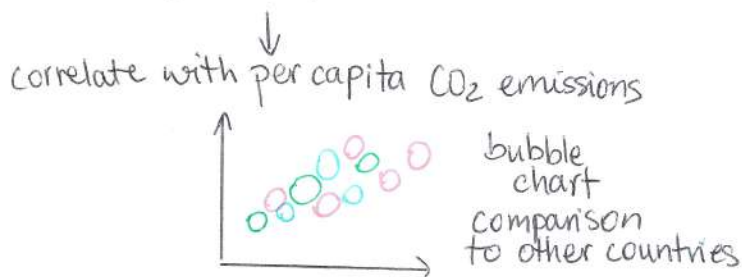 correlate with per capita CO₂ emissions
bubble
chart
comparison
to other countries